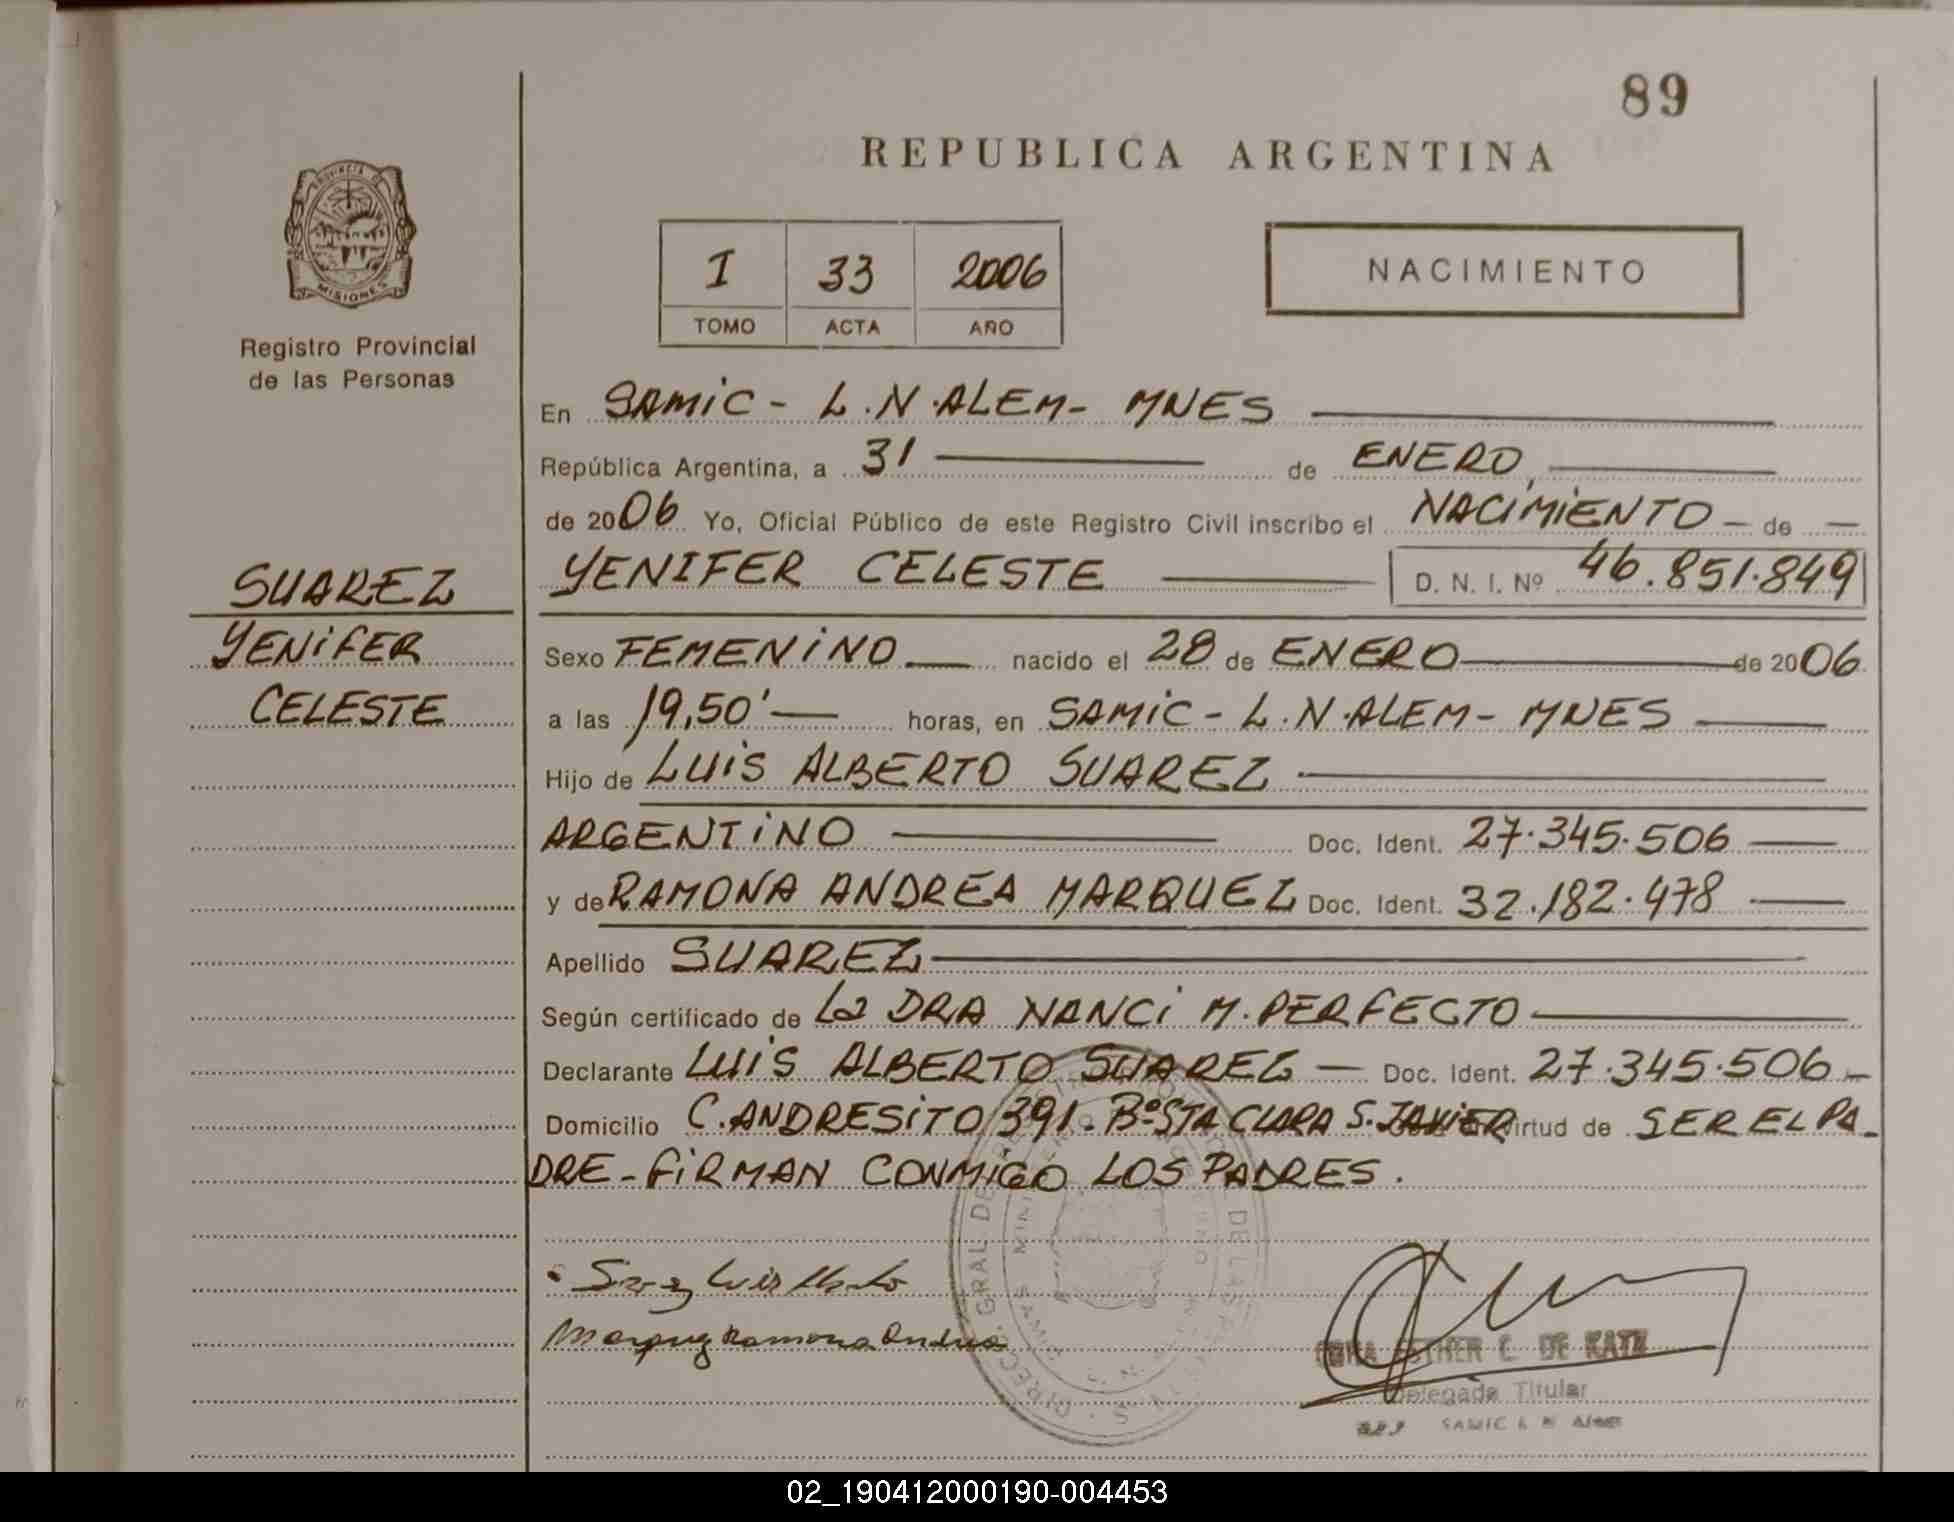 89
REPUBLICA ARGENTINA
PROVINCIA DE
MISIONES
Registro Provincial
de las Personas
I 33 2006
TOMO ACTA AÑO
NACIMIENTO
En SAMIC - L.N.ALEM- MNES
República Argentina, a 31 de ENERO
de 2006 Yo, Oficial Público de este Registro Civil inscribo el NACIMIENTO - de -
SUAREZ
YENIFER
CELESTE
YENIFER CELESTE D. N. I. Nº 46.851.849
Sexo FEMENINO nacido el 28 de ENERO de 2006
a las 19,50' horas, en SAMIC - L.N.ALEM- MNES
Hijo de LUIS ALBERTO SUAREZ
ARGENTINO Doc. Ident. 27.345.506
y de RAMONA ANDREA MARQUEZ Doc. Ident. 32.182.478
Apellido SUAREZ
Según certificado de La DRA NANCI M. PERFECTO
Declarante LUIS ALBERTO SUAREZ - Doc. Ident. 27.345.506-
Domicilio C. ANDRESITO 391 - Bº STA CLARA S. JAVIER virtud de SER EL PA-
DRE - FIRMAN CONMIGO LOS PADRES.
Luis
Marquez Ramona Andrea
ESTHER C. DE KATZ
Delegada Titular
SAMIC L N
02_190412000190-004453